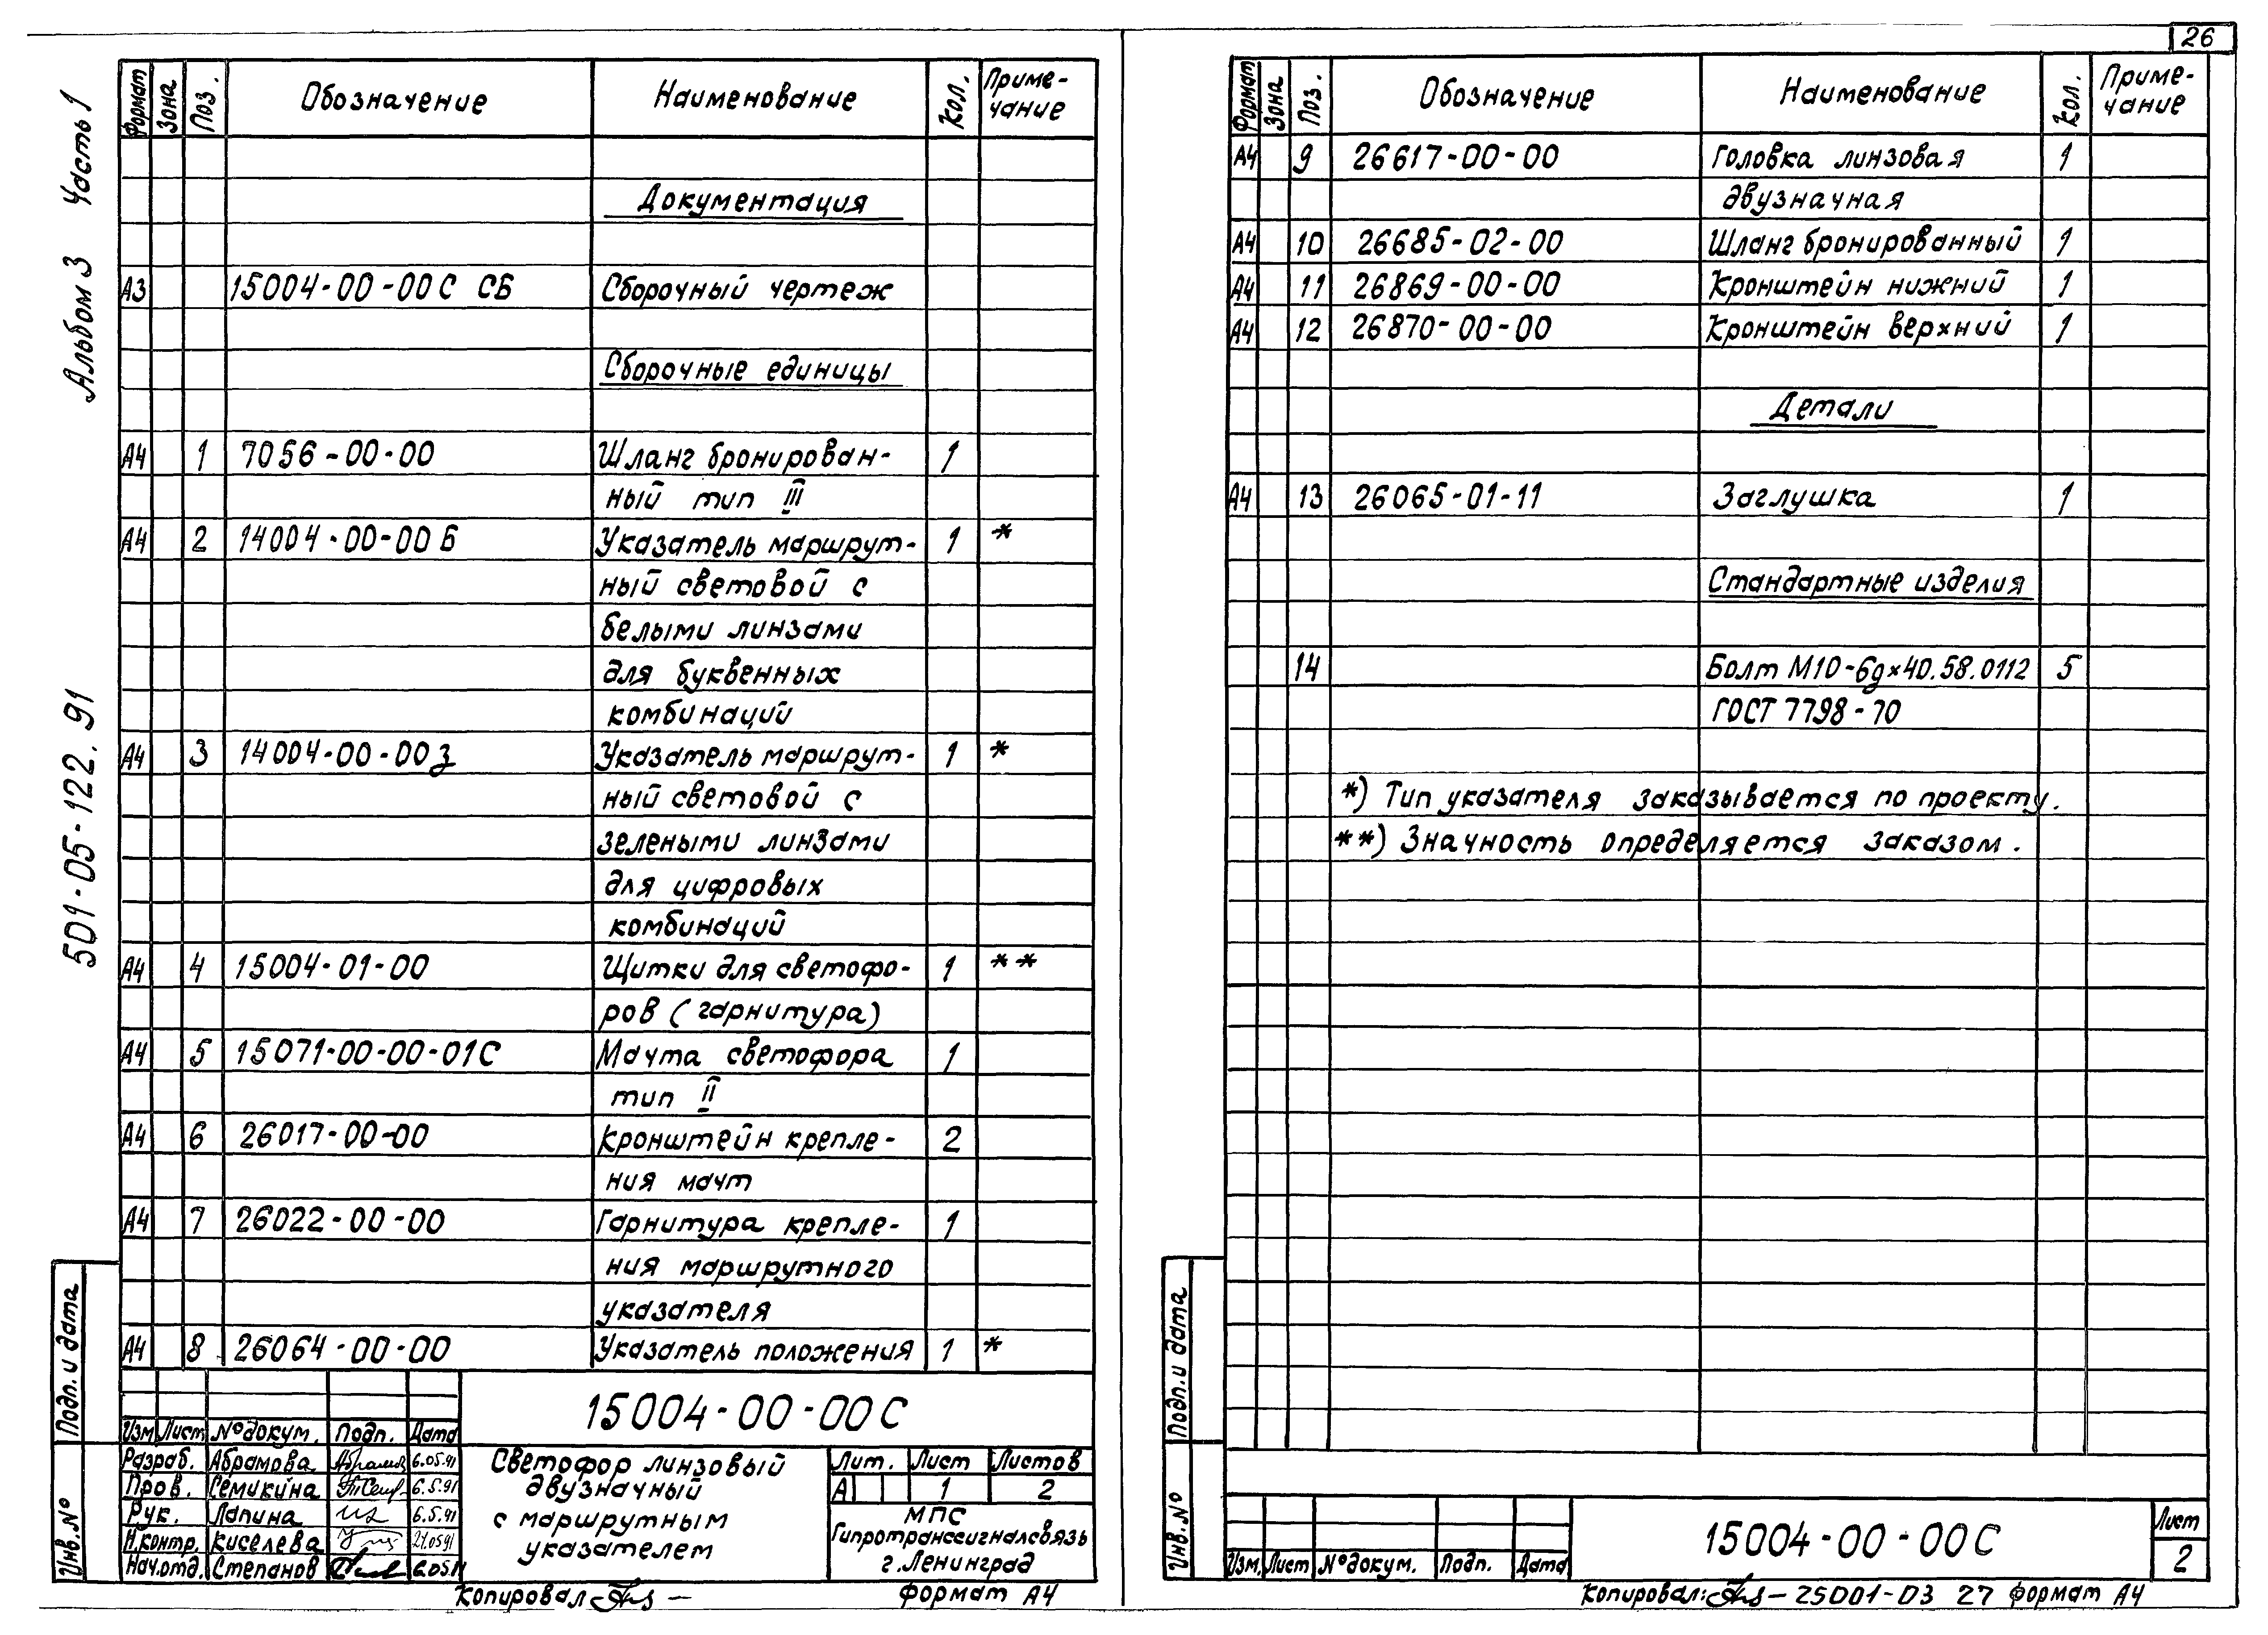 26
Альбом 3 Часть 1
501-05-122.91
Формат Зона Поз. Обозначение Наименование Кол. Приме-
чание
Документация
А3 15004-00-00С СБ Сборочный чертеж
Сборочные единицы
А4 1 7056-00-00 Шланг бронирован- 1
ный тип III
А4 2 14004-00-00Б Указатель маршрут- 1 *
ный световой с
белыми линзами
для буквенных
комбинаций
А4 3 14004-00-00з Указатель маршрут- 1 *
ный световой с
зелеными линзами
для цифровых
комбинаций
А4 4 15004-01-00 Щитки для светофо- 1 **
ров (гарнитура)
А4 5 15071-00-00-01С Мачта светофора 1
тип II
А4 6 26017-00-00 Кронштейн крепле- 2
ния мачт
А4 7 26022-00-00 Гарнитура крепле- 1
ния маршрутного
указателя
А4 8 26064-00-00 Указатель положения 1 *
15004-00-00С
Изм Лист № докум. Подп. Дата
Разраб. Абрамова 6.05.91
Пров. Семикина 6.5.91
Рук. Лапина 6.5.91
Н.контр. Киселева 21.05.91
Нач.отд. Степанов 6.05.91
Светофор линзовый
двузначный
с маршрутным
указателем
Лит. Лист Листов
А 1 2
МПС
Гипротранссигналсвязь
г.Ленинград
Копировал Формат А4
Подп. и дата
Инв.№
Формат Зона Поз. Обозначение Наименование Кол. Приме-
чание
А4 9 26617-00-00 Головка линзовая 1
двузначная
А4 10 26685-02-00 Шланг бронированный 1
А4 11 26869-00-00 Кронштейн нижний 1
А4 12 26870-00-00 Кронштейн верхний 1
Детали
А4 13 26065-01-11 Заглушка 1
Стандартные изделия
14 Болт М10-6g×40.58.0112 5
ГОСТ 7798-70
*) Тип указателя заказывается по проекту.
**) Значность определяется заказом.
Подп. и дата
Инв.№
Изм. Лист № докум. Подп. Дата
15004-00-00С
Лист
2
Копировал: 25001-03 27 Формат А4